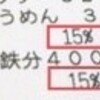 うめん 3
15%
鉄分400
15%